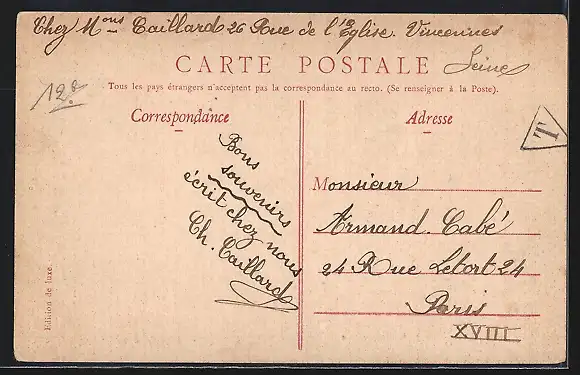 Chez Mons Caillard 26 Rue de l'Eglise. Vincennes
Seine
CARTE POSTALE
12e
Tous les pays étrangers n'acceptent pas la correspondance au recto. (Se renseigner à la Poste).
Correspondance
Adresse
T
Bons
souvenirs
écrit chez nous
Ch. Caillard
Monsieur
Armand. Cabé
24 Rue Letort 24
Paris
XVIII
Edition de luxe.